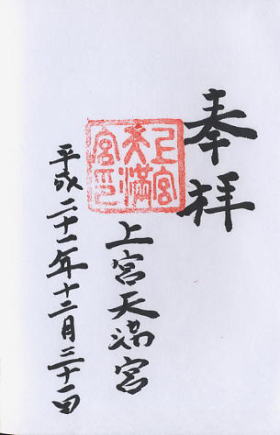 奉拝
上宮天満宮
上宮天満宮印
平成二十一年十二月三十一日